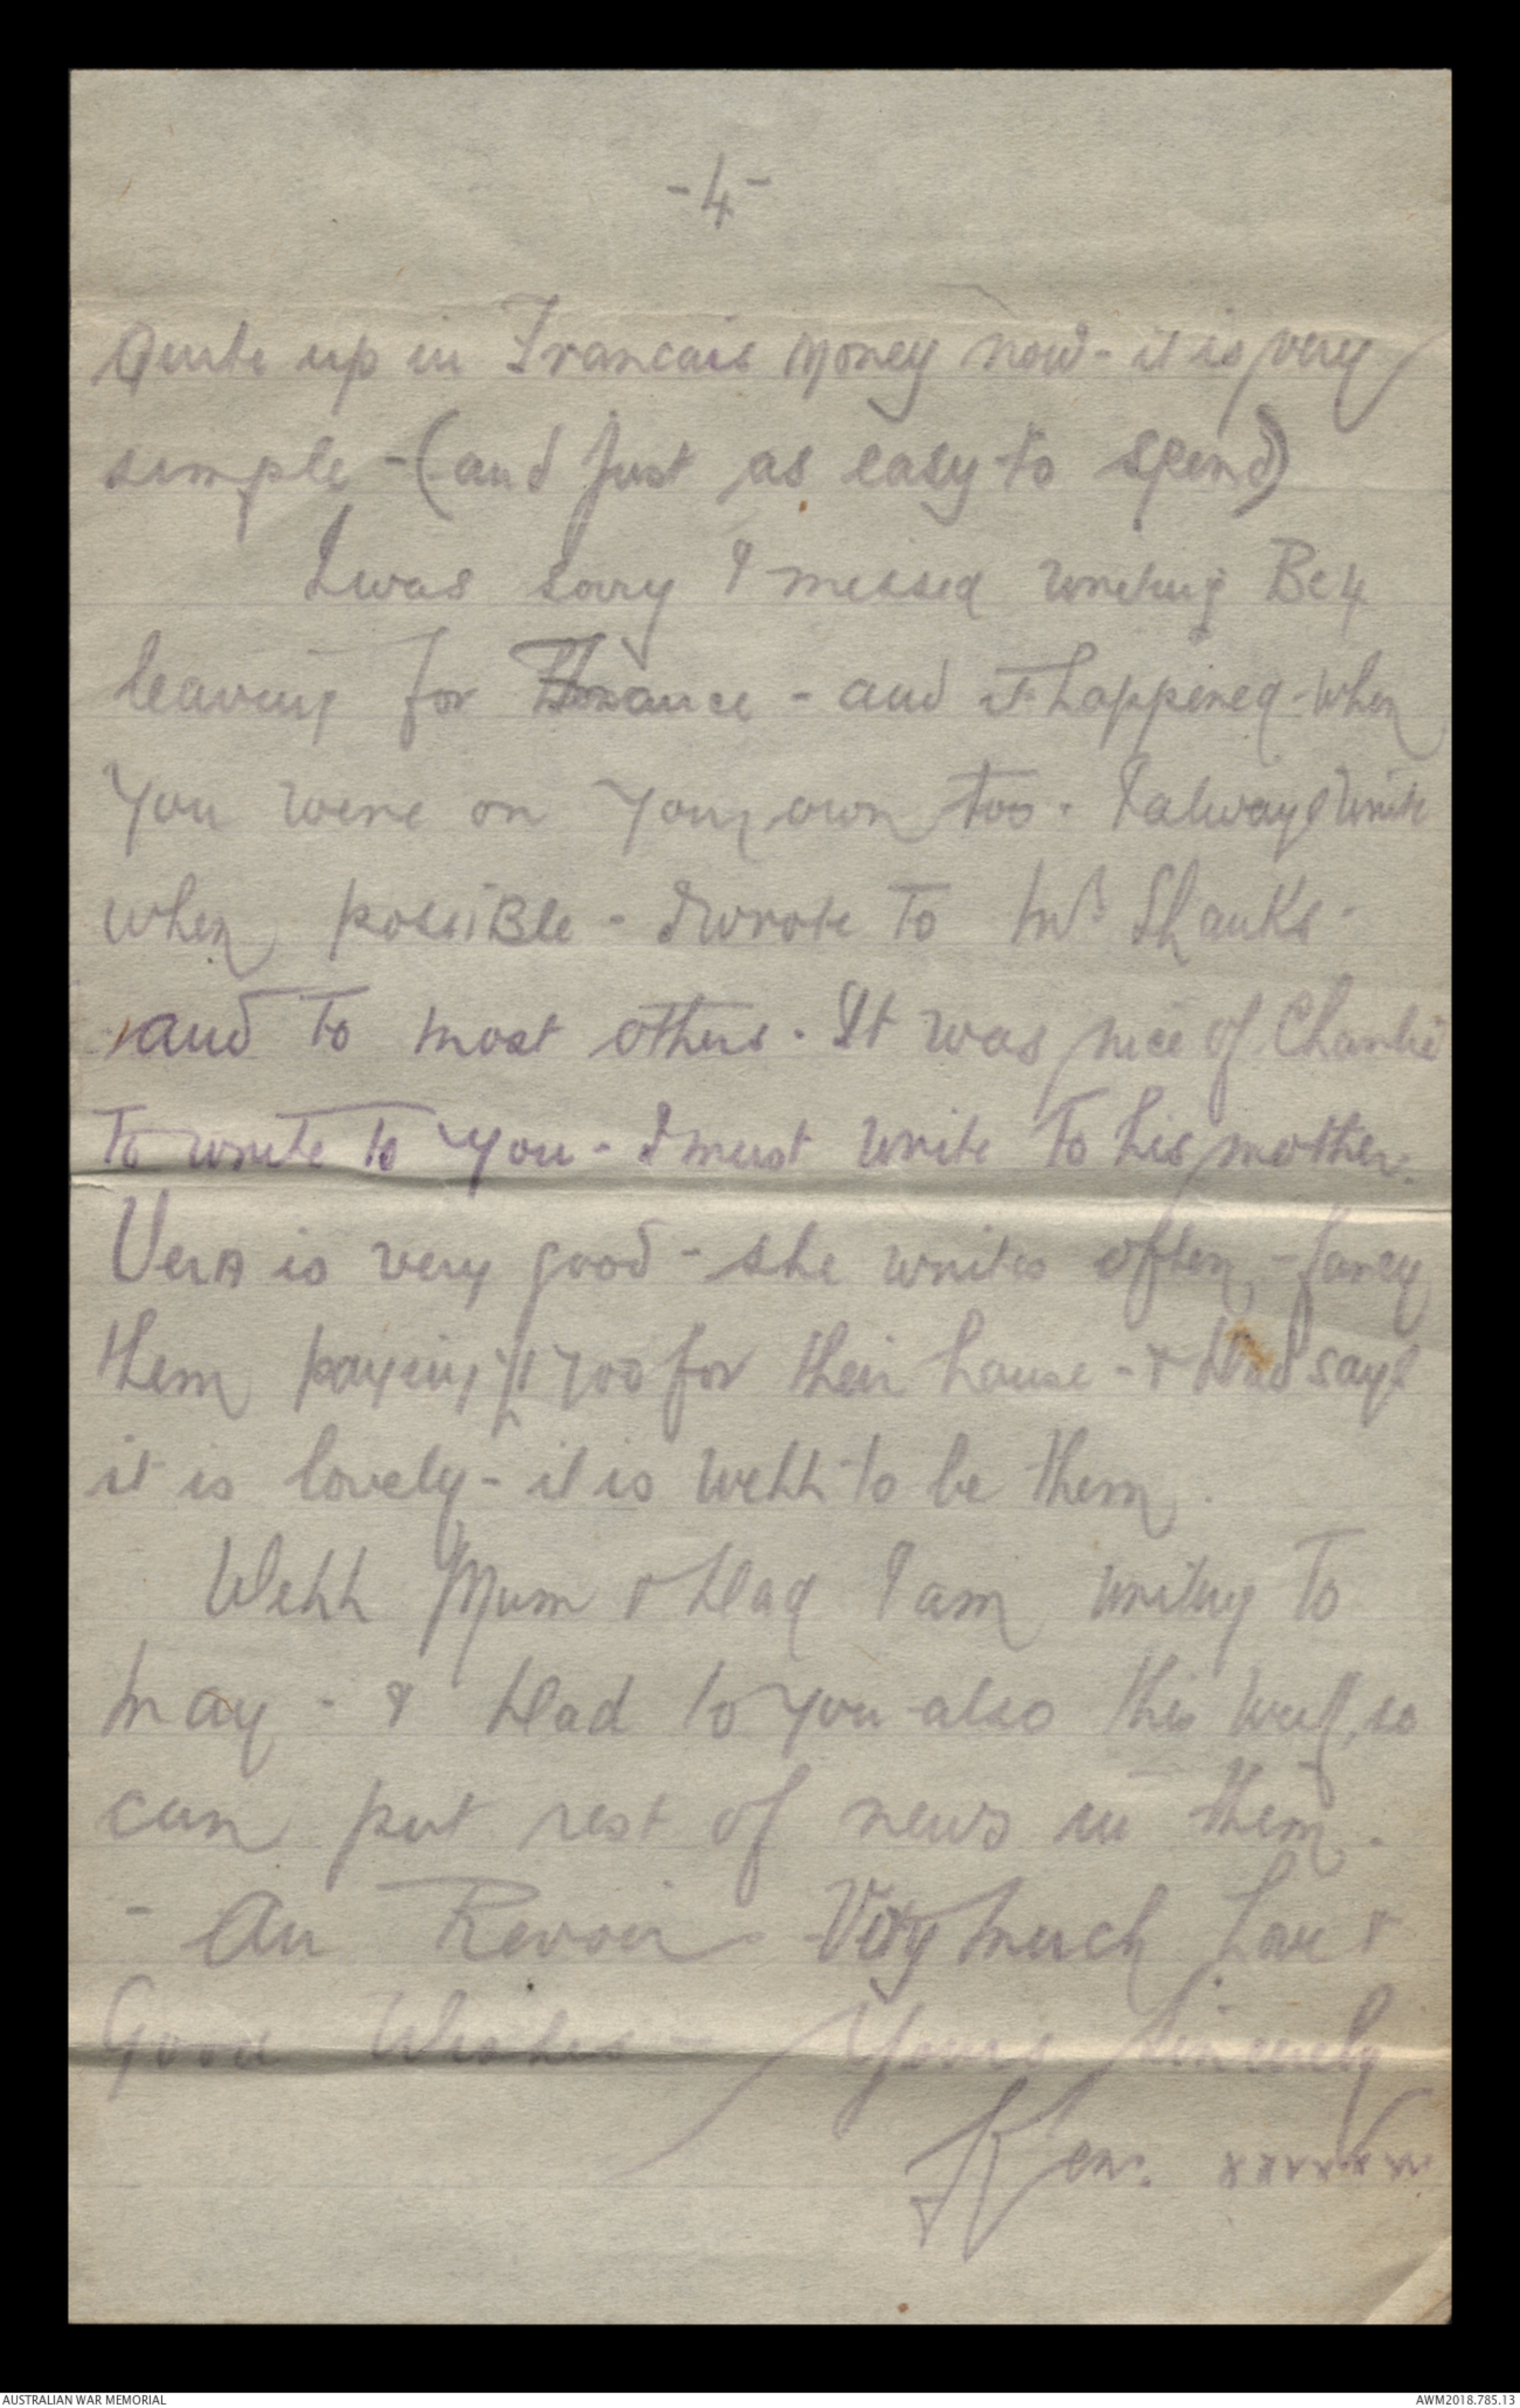 -4-
Quite up in Francais money now - it is very
simple - (and just as easy to spend)
I was sorry I missed writing Be4
leaving for France - and it happened - when
you were on your own too. I always write
when possiBle - I wrote to Mrs Shanks -
and to most others. It was nice of Charlie
to write to you - I must write to his mother.
Vera is very good - she writes often, - fancy
them paying £700 for their house - & Dad says
it is lovely - it is well to be them.
Well Mum & Dad I am writing to
May - & Dad to you also this week, so
can put rest of news in them.
- Au Revoir - Very much Love &
Good Wishes - Yours Sincerely
Ken. xxxxxxx
AUSTRALIAN WAR MEMORIAL
AWM2018.785.13